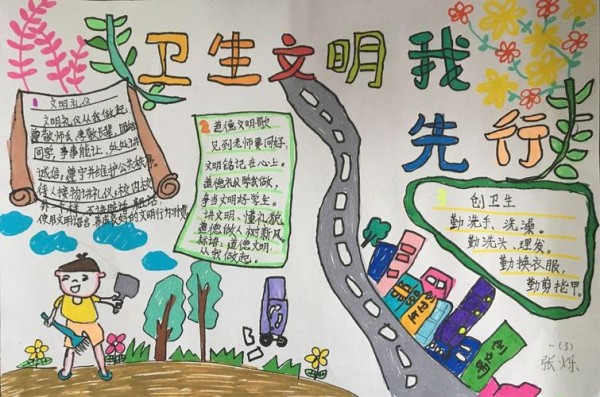 卫生文明我
先行
文明礼仪
文明礼仪从我做起
尊敬师长
同学,事事能让,处处讲
诚信,遵守并维护公共秩序。
待人接物讲礼仪,校内校
使用文明语言,养成良好的文明行为习惯
2 道德文明歌
见到老师要问好,
文明铭记在心上。
道德礼仪我做,
争当文明好学生。
讲文明、懂礼貌,
道德做人树新风,
标语:道德文明,
从我做起。
3
创卫生
勤洗手、洗澡。
勤洗头、理发。
勤换衣服,
勤剪指甲。
一(3)
张烁